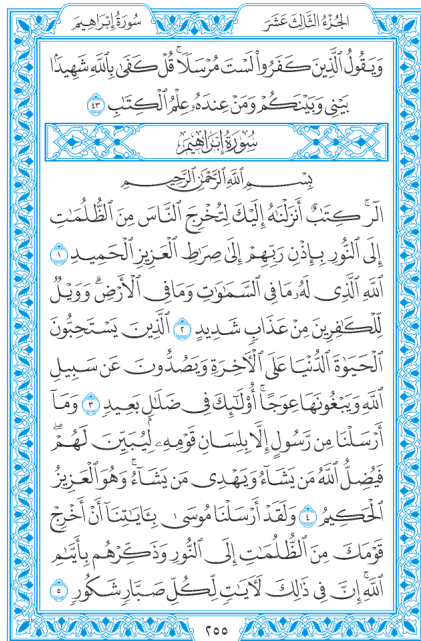 الجُزْءُ الثَّالِثَ عَشَرَ
سُورَةُ إِبْرَاهِيمَ
وَيَقُولُ ٱلَّذِينَ كَفَرُوا۟ لَسْتَ مُرْسَلًا ۚ قُلْ كَفَىٰ بِٱللَّهِ شَهِيدًۢا
بَيْنِى وَبَيْنَكُمْ وَمَنْ عِندَهُۥ عِلْمُ ٱلْكِتَـٰبِ ٤٣
سُورَةُ إِبْرَاهِيمَ
بِسْمِ ٱللَّهِ ٱلرَّحْمَـٰنِ ٱلرَّحِيمِ
الٓر ۚ كِتَـٰبٌ أَنزَلْنَـٰهُ إِلَيْكَ لِتُخْرِجَ ٱلنَّاسَ مِنَ ٱلظُّلُمَـٰتِ
إِلَى ٱلنُّورِ بِإِذْنِ رَبِّهِمْ إِلَىٰ صِرَٰطِ ٱلْعَزِيزِ ٱلْحَمِيدِ ١
ٱللَّهِ ٱلَّذِى لَهُۥ مَا فِى ٱلسَّمَـٰوَٰتِ وَمَا فِى ٱلْأَرْضِ ۗ وَوَيْلٌ
لِّلْكَـٰفِرِينَ مِنْ عَذَابٍ شَدِيدٍ ٢ ٱلَّذِينَ يَسْتَحِبُّونَ
ٱلْحَيَوٰةَ ٱلدُّنْيَا عَلَى ٱلْـَٔاخِرَةِ وَيَصُدُّونَ عَن سَبِيلِ
ٱللَّهِ وَيَبْغُونَهَا عِوَجًا ۚ أُو۟لَـٰٓئِكَ فِى ضَلَـٰلٍۭ بَعِيدٍ ٣ وَمَآ
أَرْسَلْنَا مِن رَّسُولٍ إِلَّا بِلِسَانِ قَوْمِهِۦ لِيُبَيِّنَ لَهُمْ ۖ
فَيُضِلُّ ٱللَّهُ مَن يَشَآءُ وَيَهْدِى مَن يَشَآءُ ۚ وَهُوَ ٱلْعَزِيزُ
ٱلْحَكِيمُ ٤ وَلَقَدْ أَرْسَلْنَا مُوسَىٰ بِـَٔايَـٰتِنَآ أَنْ أَخْرِجْ
قَوْمَكَ مِنَ ٱلظُّلُمَـٰتِ إِلَى ٱلنُّورِ وَذَكِّرْهُم بِأَيَّىٰمِ
ٱللَّهِ ۚ إِنَّ فِى ذَٰلِكَ لَـَٔايَـٰتٍ لِّكُلِّ صَبَّارٍ شَكُورٍ ٥
٢٥٥